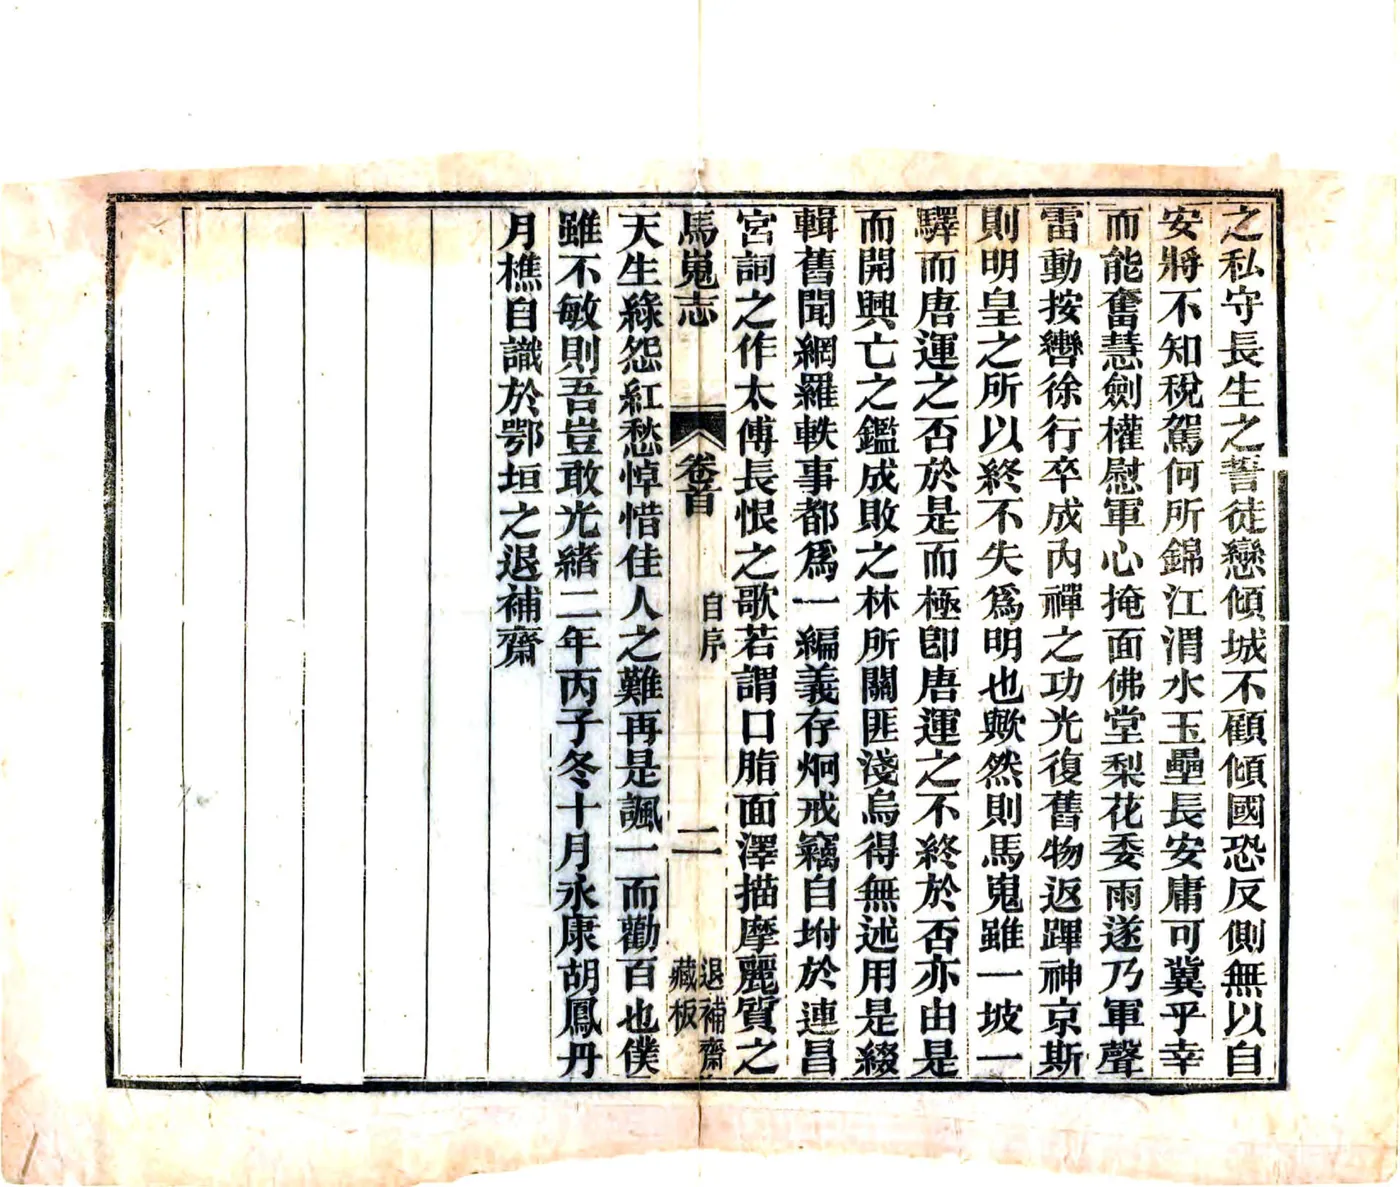 之私守長生之誓徒戀傾城不顧傾國恐反側無以自
安將不知稅駕何所錦江渭水玉壘長安庸可冀乎幸
而能奮慧劍權慰軍心掩面佛堂梨花委雨遂乃軍聲
雷動按轡徐行卒成內禪之功光復舊物返蹕神京斯
則明皇之所以終不失爲明也歟然則馬嵬雖一坡一
驛而唐運之否於是而極卽唐運之不終於否亦由是
而開興亡之鑑成敗之林所關匪淺烏得無述用是綴
輯舊聞網羅軼事都爲一編義存炯戒竊自坿於連昌
宮詞之作太傅長恨之歌若謂口脂面澤描摩麗質之
馬嵬志
卷首
自序
二
退補齋
藏板
天生綠怨紅愁悼惜佳人之難再是諷一而勸百也僕
雖不敏則吾豈敢光緒二年丙子冬十月永康胡鳳丹
月樵自識於鄂垣之退補齋